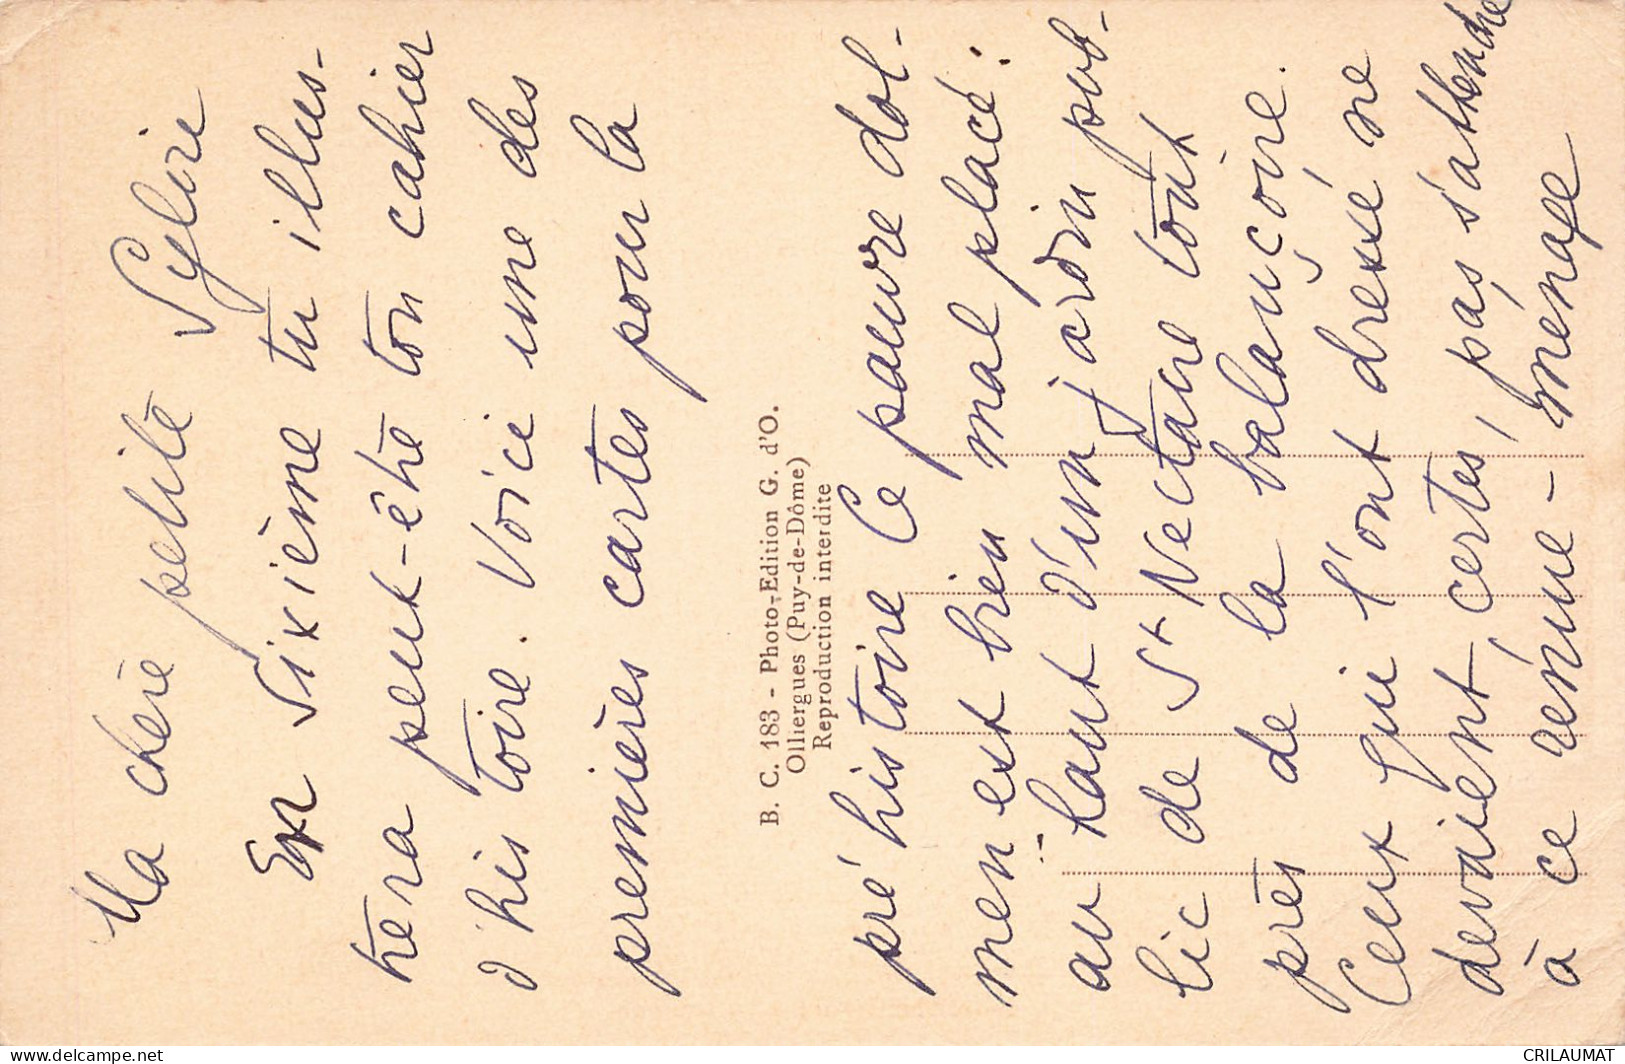 Ma chère petite Sylvie
En Sixième tu illus-
trera peut-être ton cahier
d'histoire. Voici une des
premières cartes pour la
B. C. 183 - Photo-Edition G. d'O.
Olliergues (Puy-de-Dôme)
Reproduction interdite
pré histoire Ce pauvre dol-
men est bien mal placé :
au haut d'un jardin pub-
lic de St Nectaire tout
près de la balançoire.
Ceux qui l'ont dressé ne
devaient certes, pas s'attendre
à ce rémue-ménage
www.delcampe.net
CRILAUMAT